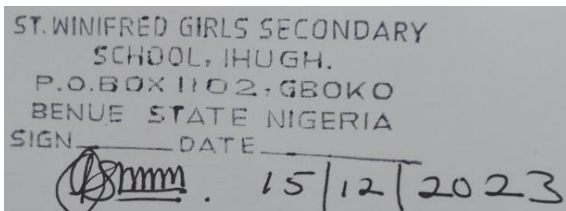 ST. WINIFRED GIRLS SECONDARY
SCHOOL, IHUGH.
P.O.BOX 1102, GBOKO
BENUE STATE NIGERIA
SIGN DATE
15/12/2023